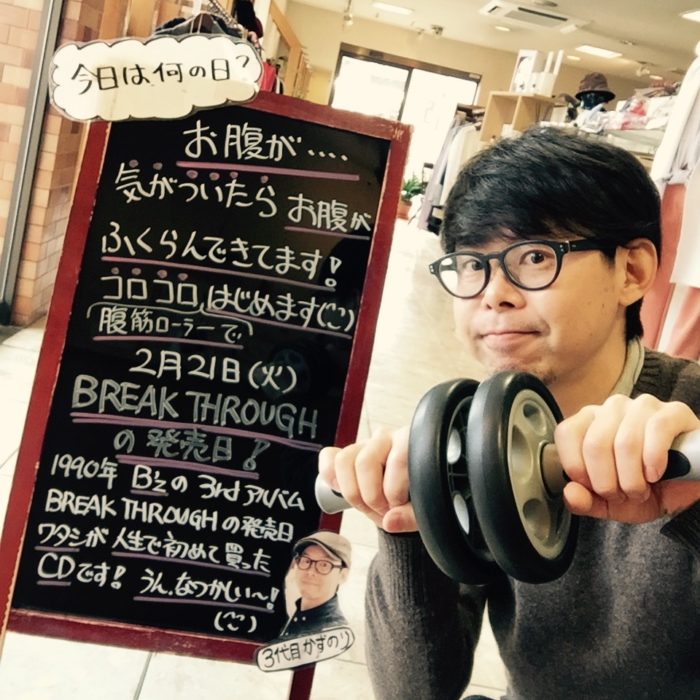 今日は何の日?
お腹が‥‥
気がついたら お腹が
ふくらんできてます!
コロコロ はじめます(^^)
腹筋ローラーで、
2月21日(火)
BREAK THROUGH
の 発売日!
1990年 B'zの 3rdアルバム
BREAK THROUGHの発売日
ワタシが 人生で初めて買った
CDです! うん、なつかしい〜!
(^^)
3代目かずのり